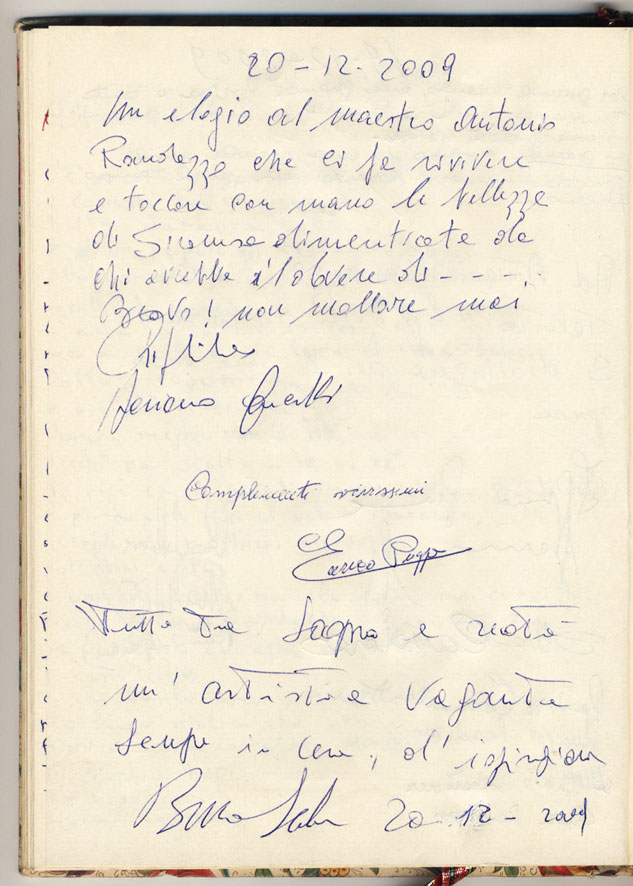 20-12-2009
Un elogio al maestro Antonio
Randazzo che ci fa rivivere
e toccare con mano le bellezze
di Siracusa dimenticate da
chi avrebbe il dovere di - - - -
Bravo! non mollare mai
Complimenti vivissimi
Enrico
Tutto tra sogno e realtà
un' artista vagante
sempre in cerca, d' ispirazione
20-12-2009